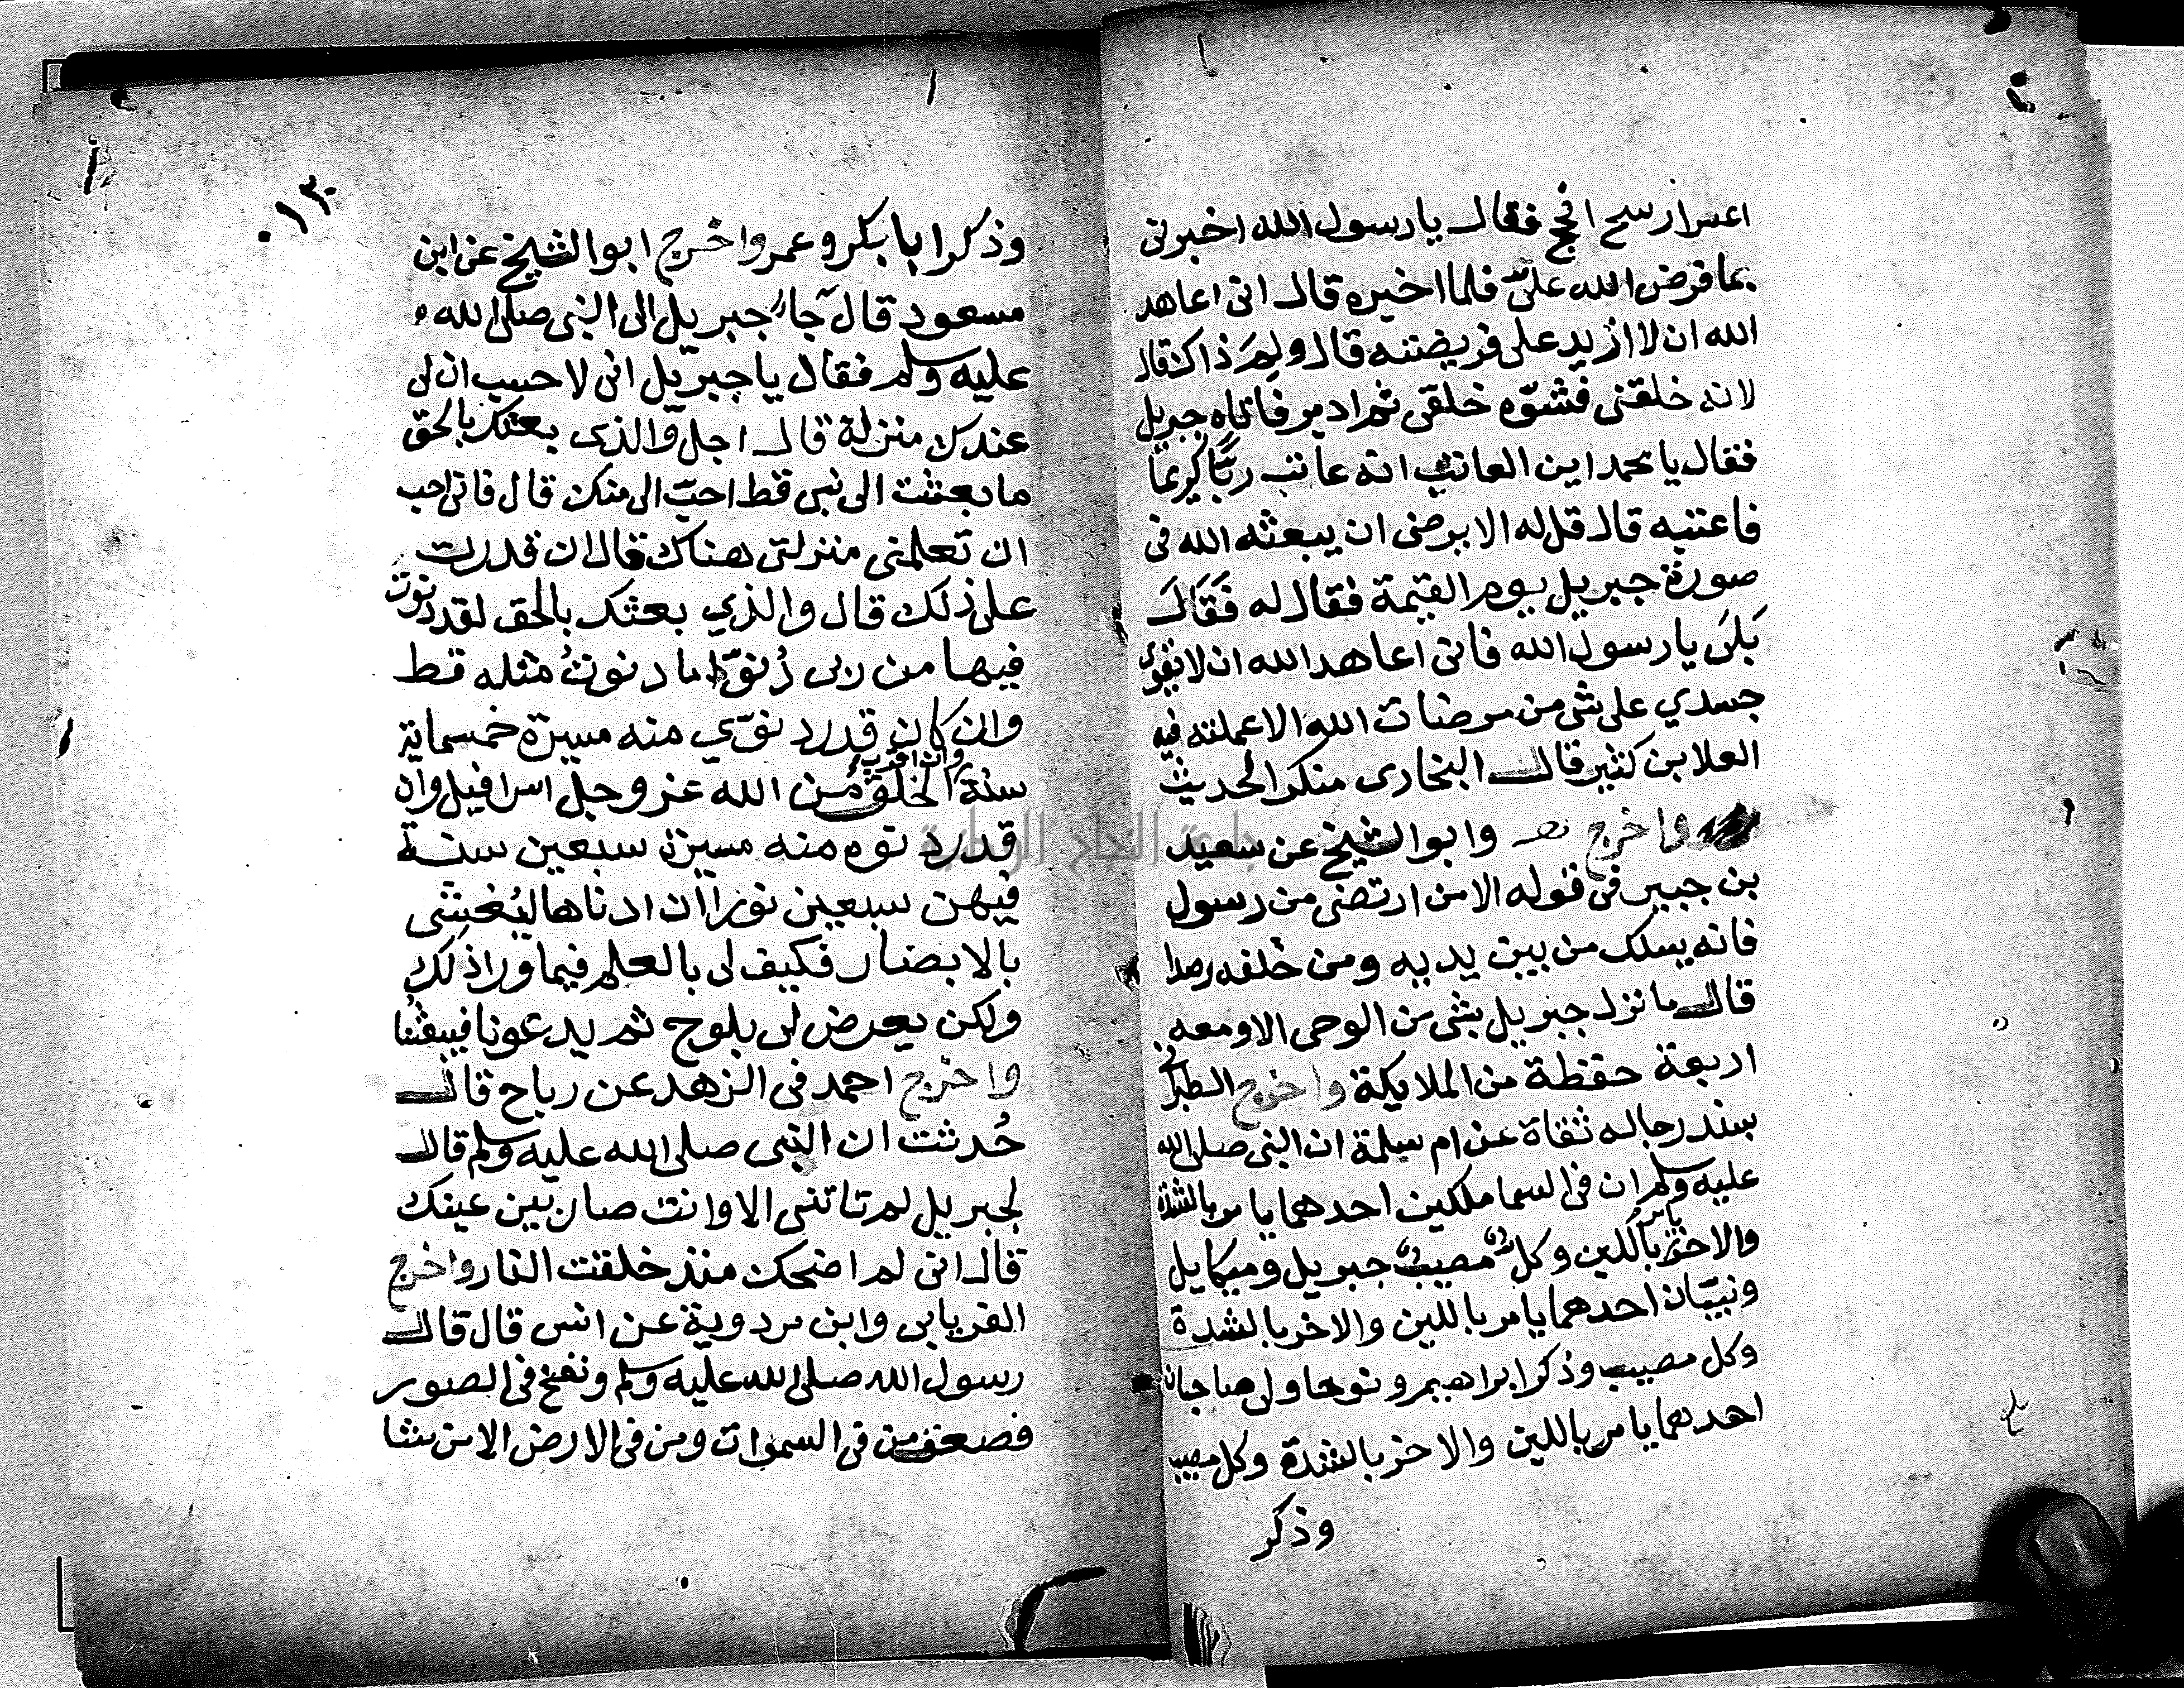 اعسرا رسح افحج فقال يا رسول الله اخبرنى
بما فرض الله علىّ فلما اخبره قال انى اعاهد
الله ان لا ازيد على فريضته قال ولِمَ ذاك قال
لانه خلقنى فشوّه خلقى ثم ادبر فاتاه جبريل
فقال يا محمد اين العاتب انه عاتب ربًّا كريما
فاعتبه قال قل له الا يرضى ان يبعثه الله فى
صورة جبريل يوم القيمة فقال له فَقَالَ
بَلَى يا رسول الله فانى اعاهد الله ان لا يقوى
جسدي على شى من مرضات الله الا عملته فيه
العلا بن كثير قال البخارى منكر الحديث
واخرج وابو الشيخ عن سعيد
بن جبير فى قوله الا من ارتضى من رسول
فانه يسلك من بين يديه ومن خلفه رصدا
قال ما نزل جبريل بشى من الوحى الا ومعه
اربعة حفظة من الملايكة واخرج الطبرانى
بسند رجاله ثقاة عن ام سلمة ان النبى صلى الله
عليه وسلم ان فى السما ملكين احدهما يامر بالشدة
والاخر يامر باللين وكل مصيب جبريل وميكايل
ونبيّان احدهما يامر باللين والاخر بالشدة
وكل مصيب وذكر ابراهيم ونوحا ولى صاحبان
احدهما يامر باللين والاخر بالشدة وكل مصيب
وذكر
١٣٠
وذكر ابا بكر وعمر واخرج ابو الشيخ عن ابن
مسعود قال جا جبريل الى النبى صلى الله
عليه وسلم فقال يا جبريل انى لاحسب ان لى
عندك منزلة قال اجل والذى بعثك بالحق
ما بعثت الى نبى قط احبّ الى منك قال فانى احب
ان تعلمنى منزلتى هناك قال ان قدرت
على ذلك قال والذي بعثك بالحق لقد دنوت
فيها من ربى دُنوّا ما دنوتُ مثله قط
وان كان قدر دنوّي منه مسيرة خمسماية
سنة وان اقرب الخلق من الله عز وجل اسرافيل وان
قدر دنوه منه مسيرة سبعين سنة
فيهن سبعين نورا ان ادناها ليُغشى
بالابصار فكيف لى بالعلم فيما ورا ذلك
ولكن يعرض لى بلوح ثم يدعونا فيبعثُنا
واخرج احمد فى الزهد عن رباح قال
حُدثت ان النبى صلى الله عليه وسلم قال
لجبريل لم تاتنى الا وانت صان بين عينك
قال انى لم اضحك منذ خلقت النار واخرج
الفريابى وابن مردوية عن انس قال قال
رسول الله صلى الله عليه وسلم ونفخ فى الصور
فصعق من فى السموات ومن فى الارض الا من شا